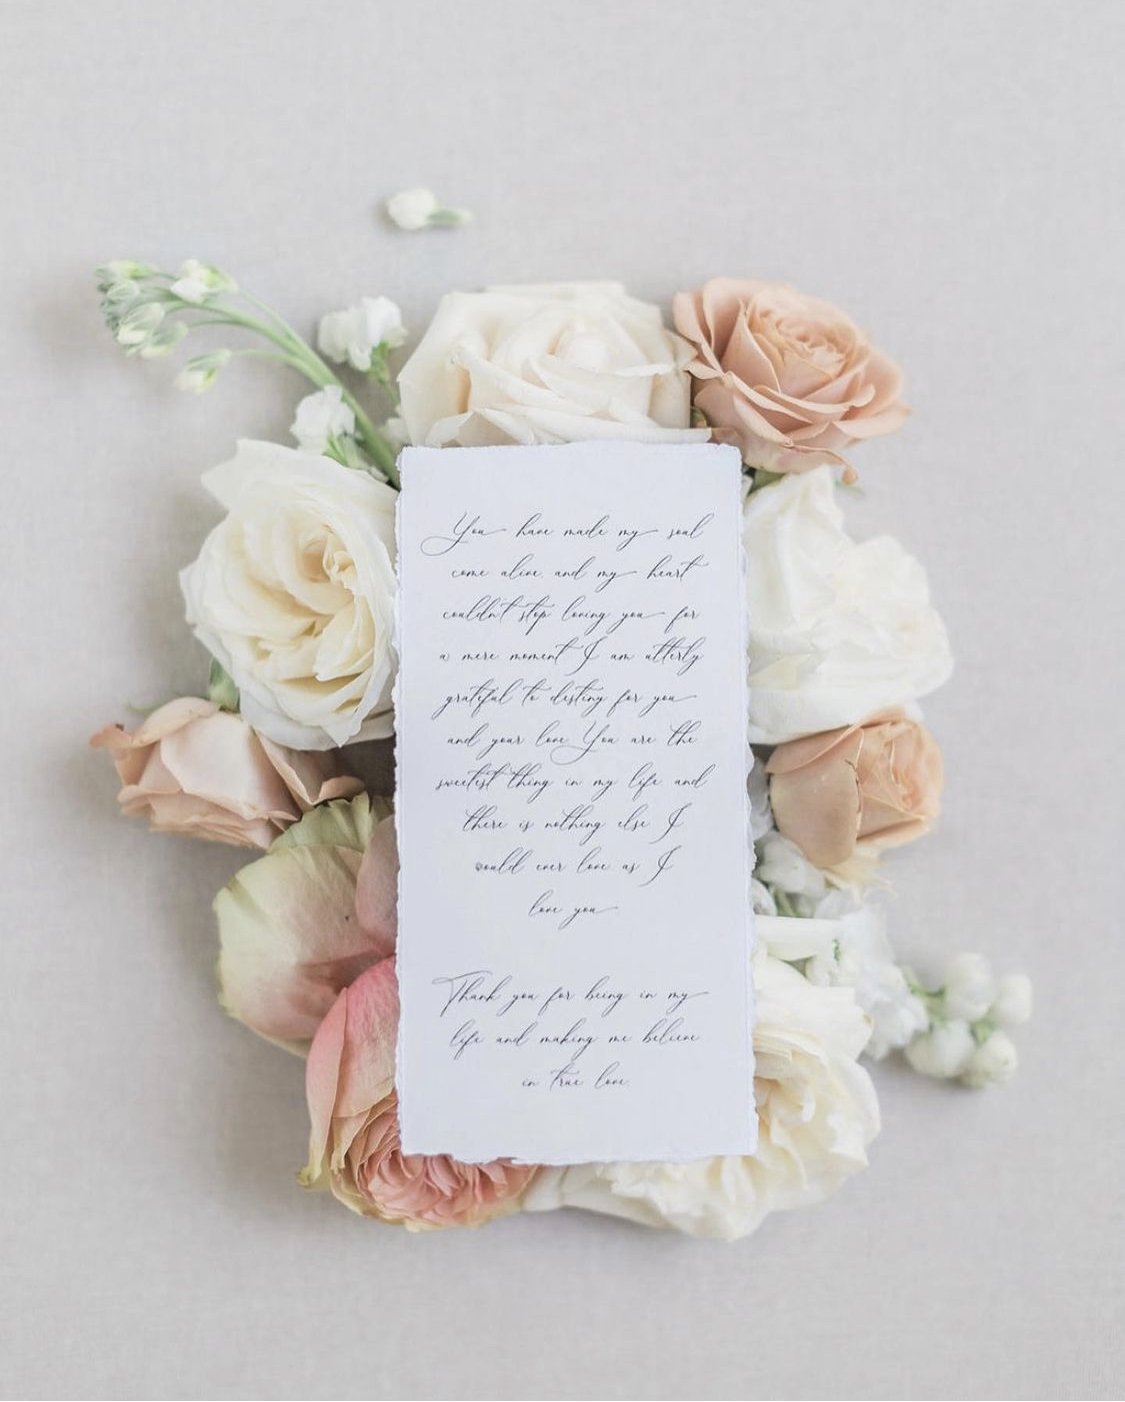 You have made my soul
come alive, and my heart
couldn't stop loving you for
a mere moment I am utterly
grateful to destiny for you
and your love You are the
sweetest thing in my life and
there is nothing else I
would ever love as I
love you
Thank you for being in my
life and making me believe
in true love.